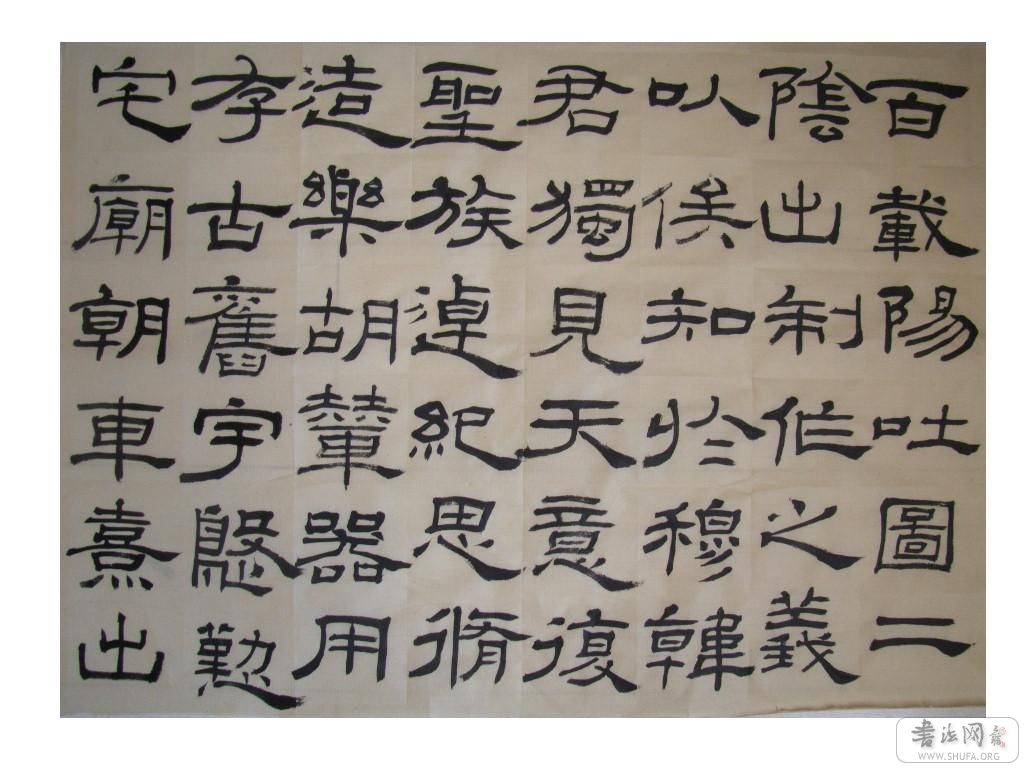 百載陽吐圖二
陰出制作之義
以俟知於穆韓
君獨見天意復
聖族逴紀思脩
造樂胡輦器用
存古舊宇慇懃
宅廟朝車熹出
書法网
WWW.SHUFA.ORG